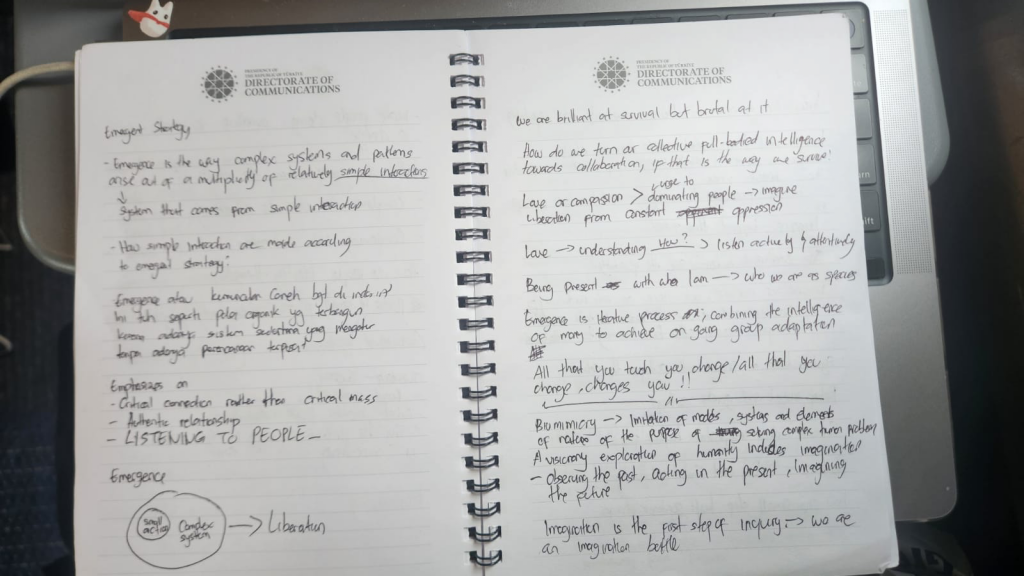 PRESIDENCY OF
THE REPUBLIC OF TÜRKİYE
DIRECTORATE OF
COMMUNICATIONS
Emergent Strategy
- Emergence is the way complex systems and patterns
arise out of a multiplicity of relatively simple interactions
system that comes from simple interaction
- How simple interaction are made according
to emergent strategy?
Emergence atau kemunculan (aneh bgt di indo in?
Ini tuh seperti pola organik yg terbangun
karena adanya sistem sederhana yang mengatur
tanpa adanya perencanaan terpusat
Emphasizes on
- Critical connection rather than critical mass
- Authentic relationship
- LISTENING TO PEOPLE -
Emergence
small
action
Complex
system
→ Liberation
PRESIDENCY OF
THE REPUBLIC OF TÜRKİYE
DIRECTORATE OF
COMMUNICATIONS
We are brilliant at survival but brutal at it
How do we turn our collective full-bodied intelligence
towards collaboration, if that is the way we survive?
urge to
Love or compassion > dominating people → imagine
liberation from constant oppression
Love → understanding How? > listen actively & attentively
Being present with who I am → who we are as species
Emergence is iterative process, combining the intelligence
of many to achieve on going group adaptation
All that you touch you change / all that you
change, changes you!!
Biomimicry → Imitation of models, systems and elements
of nature of the purpose of solving complex human problem
A visionary exploration of humanity includes imagination
- Observing the past, acting in the present, Imagining
the future
Imagination is the first step of inquiry → we are
an imagination battle